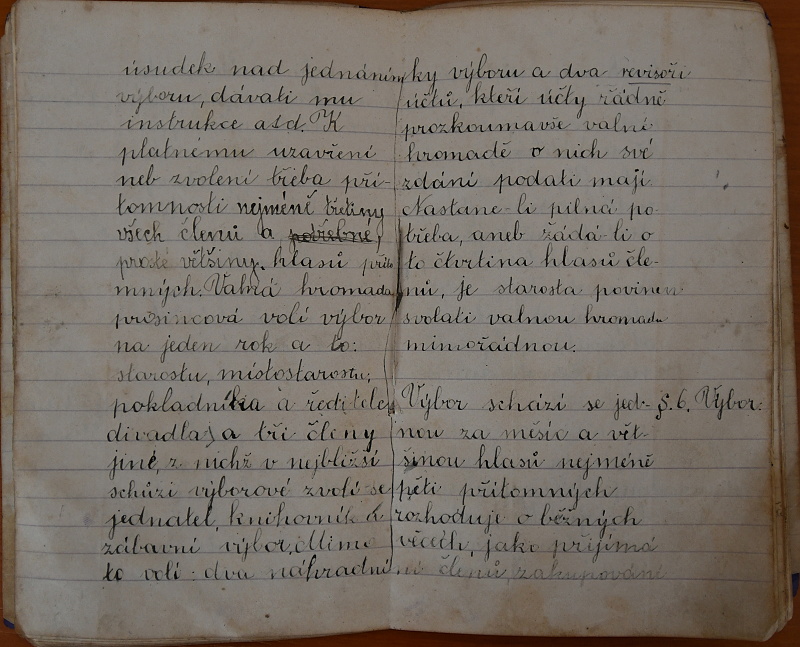 úsudek nad jednáním
výboru, dávati mu
instrukce atd. K
platnemu uzavření
neb zvolení třeba pří-
tomnosti nejméně třetiny
všech členů a potřebné,
prosté většiny hlasů příto
mných. Valná hromada
prosincová volí výbor
na jeden rok a to:
starostu, místostarostu,
pokladníka a ředitele
divadla) a tři členy
jiné, z nichž v nejbližší
schůzi výborové zvolí se
jednatel, knihovník a
zábavní výbor. Mimo
to volí: dva náhradní
ky výboru a dva revisoři
účtů, kteří účty řádně
prozkoumavše valné
hromadě o nich své
zdání podati mají.
Nastane-li pilná po-
třeba, aneb žádá-li o
to čtvrtina hlasů čle-
nů, je starosta povinen
svolati valnou hromadu
mimořádnou.
Výbor schází se jed-
§. 6. Výbor.
nou za měsíc a vět-
šinou hlasů nejméně
pěti přítomných
rozhoduje o běžných
věcech, jako přijímá
ní členů, zakupování